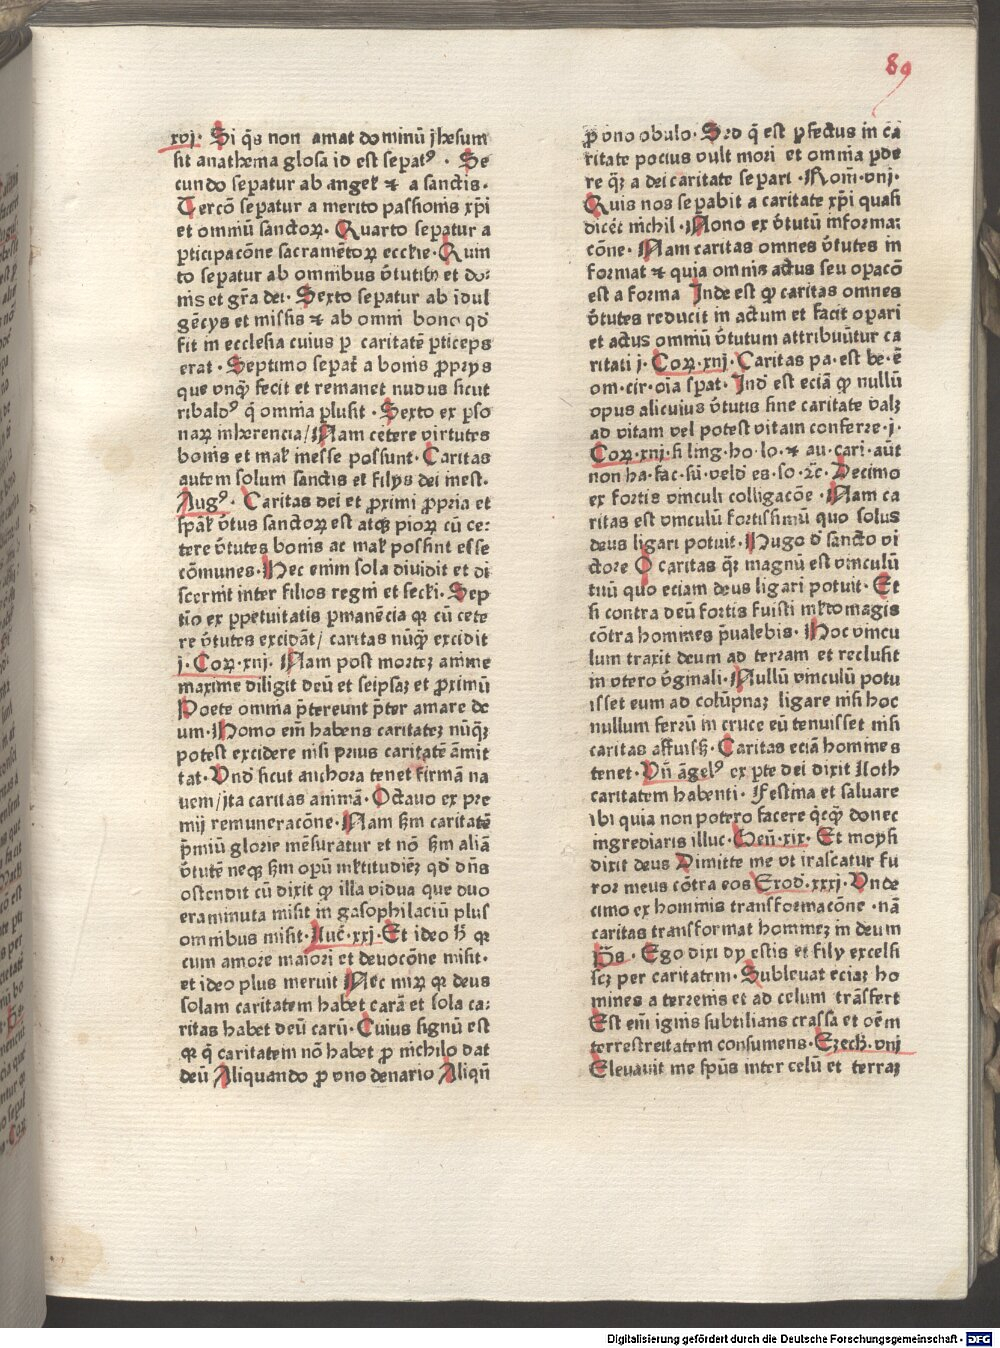 89
xvj· Si q̄s non amat dominū jhesum
sit anathema glosa id est sepat⁹ · Se
cundo sepatur ab angeł ⁊ a sanctis·
Tercō sepatur a merito passionis xp̄i
et omniū sanctoꝝ· Quarto sepatur a
ꝑticipacōne sacramētoꝝ eccłie· Quin
to sepatur ab omnibus v̄tutibꝫ et do-
nis et gr̄a dei· Sexto sepatur ab īdul
gēcijs et missis ⁊ ab omni bono qd̄
fit in ecclesia cuius ꝑ caritatē ꝑticeps
erat · Septimo sepat̄ a bonis ꝓprijs
que vnqȝ fecit et remanet nudus sicut
ribald⁹ q̄ omnia plusit · Sexto ex ꝑso
naꝝ inherencia/ Nam cetere virtutes
bonis et mał inesse possunt· Caritas
autem solum sanctis et filijs dei inest·
Aug⁹· Caritas dei et ꝓximi ꝓpria et
sp̄ał v̄tus sanctoꝝ est atqȝ pioꝝ cū ce-
tere v̄tutes bonis ac mał possint esse
cōmunes· Hec enim sola diuidit et di
scernit inter filios regni et secłi· Sep
tīo ex ꝑpetuitatis ꝑmanēcia qꝛ cū cete
re v̄tutes excidāt/ caritas nūqȝ excidit
j· Coꝝ·xiij· Nam post morteȝ anime
maxime diligit deū et seipsaȝ et ꝓximū
Poete omnia p̄tereunt p̄ter amare de
um· Homo em̄ habens caritateȝ nūqȝ
potest excidere nisi prius caritatē āmit
tat· Vnd̄ sicut anchora tenet firmā na
uem/ ita caritas animā· Octauo ex pre
mij remuneracōne· Nam sm̄ caritatē
p̄miū glorie mēsuratur et nō sm̄ aliā
v̄tutē neqȝ sm̄ opeꝝ młtitudieȝ qd̄ dn̄s
ostendit cū dixit ꝙ illa vidua que duo
era minuta misit in gasophilaciū plus
omnibus misit· Luc̄·xxj· Et ideo h̄ qꝛ
cum amore maiori et deuocōne misit·
et ideo plus meruit Nec miꝝ qꝛ deus
solam caritatem habet carā et sola ca-
ritas habet deū carū· Cuius signū est
qꝛ q̄ caritatem nō habet ꝓ nichilo dat
deū Aliquando ꝓ vno denario Aliqn̄
ꝓ vno obulo· Sed q̄ est ꝑfectus in ca
ritate pocius vult mori et omnia ꝑde
re qȝ a dei caritate separi · Rom̄·viij·
Quis nos sepabit a caritate xp̄i quasi
dicēt nichil· Nono ex v̄tutū informa-
cōne· Nam caritas omnes v̄tutes in
format ⁊ quia omnis actus seu opacō
est a forma Inde est ꝙ caritas omnes
v̄tutes reducit in actum et facit opari
et actus omniū v̄tutum attribuūtur ca
ritati j· Coꝝ·xiij· Caritas pa·est be·ē
om·cir·oīa sꝑat· Ind̄ est eciā ꝙ nullū
opus alicuius v̄tutis sine caritate valȝ
ad vitam vel potest vitam conferre·j·
Coꝝ·xiij·si ling·ho·lo·⁊ au·cari·aūt
non ha·fac·sū·velud es·so·⁊c· Decimo
ex fortis vinculi colligacōe · Nam ca
ritas est vinculū fortissimū quo solus
deus ligari potuit· Hugo d̄ sancto vi
ctore O caritas qȝ magnū est vinculū
tuū quo eciam deus ligari potuit· Et
si contra deū fortis fuisti młto magis
cōtra homines p̄ualebis· Hoc vincu
lum traxit deum ad terram et reclusit
in vtero v̄ginali· Nullū vinculū potu
isset eum ad colūpnaȝ ligare nisi hoc
nullum ferrū in cruce eū tenuisset nisi
caritas affuisȝ· Caritas eciā homines
tenet· Vn̄ āgel⁹ ex ꝑte dei dixit Loth
caritatem habenti· Festina et saluare
ibi quia non potero facere qc̄qȝ donec
ingrediaris illuc· Gen̄·xix· Et moysi
dixit deus Dimitte me vt irascatur fu
ror meus cōtra eos Exod̄·xxxj· Vnde
cimo ex hominis transformacōne ·nā
caritas transformat homineȝ in deum
Ps̄ · Ego dixi dij estis et filij excelsi
scȝ per caritatem· Subleuat eciaȝ ho
mines a terrenis et ad celum trāsfert
Est em̄ ignis subtilians crassa et oēm
terrestreitatem consumens· Ezech̄·viij
Eleuauit me sp̄us inter celū et terraȝ
Digitalisierung gefördert durch die Deutsche Forschungsgemeinschaft - DFG